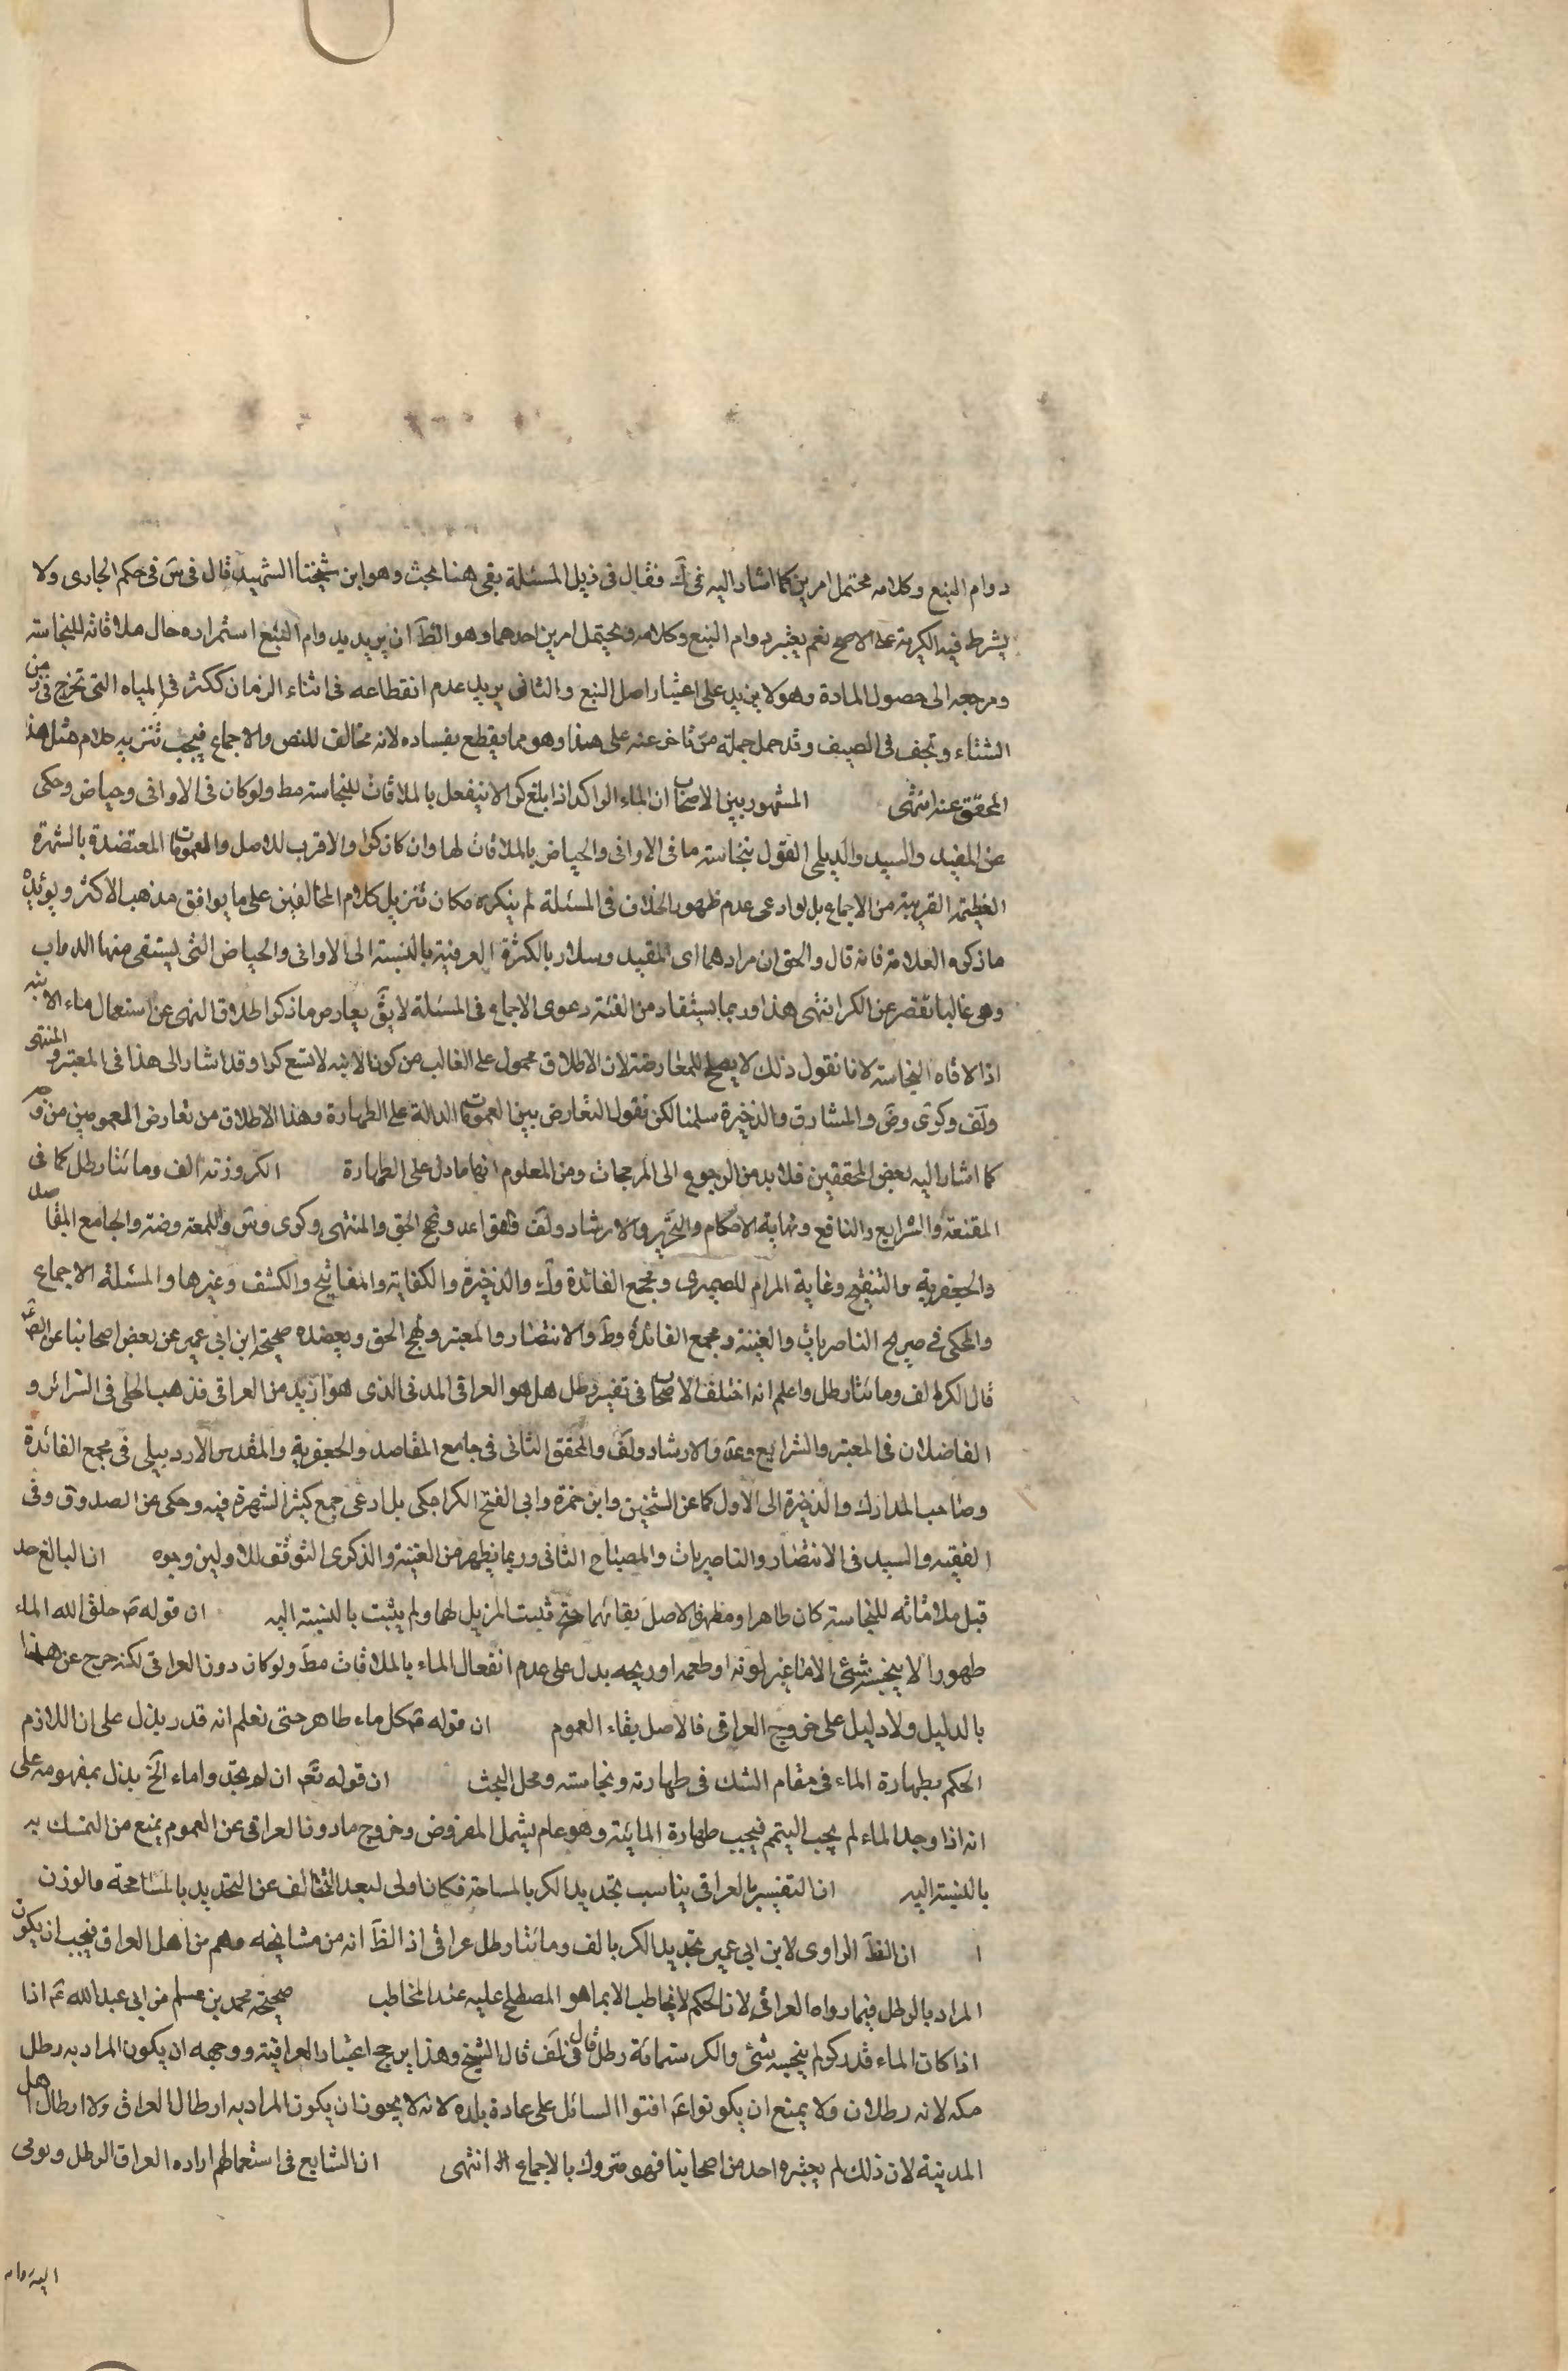 دوام النبع وكلامه محتمل امرين كما اشار اليه فى ك فقال فى ذيل المسئلة بقى هنا بحث وهو ان شيخنا الشهيد قال فى س فى حكم الجارى ولا
يشترط فيه الكرية على الاصح نعم يعتبر دوام النبع وكلامه يحتمل امرين احدهما وهو الظ ان يريد بدوام النبع استمراره حال ملاقاته للنجاسته
ومرجعه الى حصول المادة وهو لا يزيد على اعتبار اصل النبع والثانى يريد عدم انقطاعه فى اثناء الزمان ككثر فى المياه التى تخرج فى زمن
الشتاء وتجف فى الصيف وقد حمل جملة من تاخر عنه على هذا وهو مما يقطع بفساده لانه مخالف للنص والاجماع فيجب تنزيه كلام مثل هذا
المحقق عنه انتهى المشهور بين الاصحاب ان الماء الراكد اذا بلغ كرا لا ينفعل بالملاقات للنجاسته مط ولو كان فى الاوانى وحياض وحكى
عن المفيد والسيد والديلمى القول بنجاسته ما فى الاوانى والحياض بالملاقات لها وان كان كرا والاقرب للاصل والعمومات المعتضدة بالشهرة
العظيمة القريبة من الاجماع بل لو ادعى عدم ظهور الخلاف فى المسئلة لم ينكره مكان تنزيل كلام المخالفين على ما يوافق مذهب الاكثر ويؤيده
ما ذكره العلامة فانه قال والحق ان مرادهما اى المفيد وسلار بالكثرة العرفية بالنسبته الى الاوانى والحياض التى يستقى منها الدواب
وهى غالبا تقصر عن الكر انتهى هذا وربما يستفاد من الغنية دعوى الاجماع فى المسئلة لا يق يعارض ما ذكر اطلاق النهى عن استعمال ماء الانية
اذا لاقاه النجاسته لانا نقول ذلك لا يصلح للمعارضته لان الاطلاق محمول على الغالب من كون الانيه لا تسع كرا وقد اشار الى هذا فى المعتبر والمنتهى
ولف وكرى وض والمشارق والذخيرة سلمنا لكن نقول التعارض بين العمومات الدالة على الطهارة وهذا الاطلاق من تعارض العمومين من وجه
كما اشار اليه بعض المحققين فلا بد من الرجوع الى المرجحات ومن المعلوم انها ما دل على الطهارة الكر وزنه الف ومائتا رطل كما فى
المقنعة والشرايع والنافع ونهاية الاحكام والتحرير والارشاد ولف والقواعد ونهج الحق والمنتهى وكرى وس واللمعه وضته والجامع المقاصد
والجعفرية والتنقيح وغاية المرام للصيمرى ومجمع الفائدة وك والذخيرة والكفاية والمفاتيح والكشف وغيرها والمسئلة الاجماع
والمحكى فى صريح الناصريات والغنية ومجمع الفائدة وظ والانتصار والمعتبر ونهج الحق ويعضده صحيحة ابن ابى عمير عن بعض اصحابنا عن الص ع
قال الكر الف ومائتا رطل واعلم انه اختلف الاصحاب فى تفسير رطل هل هو العراقى المدنى الذى هو ازيد من العراقى فذهب الحلى فى السرائر و
الفاضلان فى المعتبر والشرايع وعد والارشاد ولف والمحقق الثانى فى جامع المقاصد والجعفرية والمقدس الاردبيلى فى مجمع الفائدة
وصاحب المدارك والذخيرة الى الاول كما عن الشيخين وابن حمزة وابى الفتح الكراجكى بل ادعى جمع كثير الشهرة فيه وحكى عن الصدوق وفى
الفقيه والسيد فى الانتصار والناصريات والمصباح الثانى وربما يظهر من الغنية والذكرى التوقف للاولين وجوه ان البالغ حد
قبل ملاقاته للنجاسته كان طاهرا ومطهرا فالاصل بقائهما حتى يثبت المزيل لهما ولم يثبت بالنسبته اليه ان قوله ص خلق الله الماء
طهورا لا ينجسه شئ الا ما غير لونه او طعمه او ريحه يدل على عدم انفعال الماء بالملاقات مط ولو كان دون العراقى لكنه خرج عن هذا
بالدليل ولا دليل على خروج العراقى فالاصل بقاء العموم ان قوله ص كل ماء طاهر حتى تعلم انه قذر يدل على ان اللازم
الحكم بطهارة الماء فى مقام الشك فى طهارته ونجاسته ومحل البحث ان قوله تع ان لم تجدوا ماء الخ يدل بمفهومه على
انه اذا وجد الماء لم يجب التيمم فيجب طهارة المائية وهو عام يشمل المفروض وخروج ما دون العراقى عن العموم يمنع من التمسك به
بالنسبته اليه ان التفسير بالعراقى يناسب تحديد الكر بالمساحة فكان اولى لبعد التخالف عن التحديد بالمساحة والوزن
ا ان الظ الراوى لابن ابى عمير تحديد الكر بالف ومائتا رطل عراقى اذ الظ انه من مشايخه وهم من اهل العراق فيجب ان يكون
المراد بالرطل فيما رواه العراقى لان الحكم لا يخاطب الا بما هو المصطلح عليه عند المخاطب صحيحة محمد بن مسلم عن ابى عبد الله ع اذا
اذا كان الماء قدر كر لم ينجسه شئ والكر ستمائة رطل قال فى لف قال الشيخ وهذا يرجح اعتبار العراقية ووجهه ان يكون المراد به رطل
مكه لانه رطلان ولا يمنع ان يكونوا ع افتوا السائل على عادة بلده لانه لا يجوز ان يكون المراد به ارطال العراق ولا ارطال اهل
المدينة لان ذلك لم يعتبره احد من اصحابنا فهو متروك بالاجماع انتهى ان الشايع فى استعمالهم اراده العراق الرطل ويومى